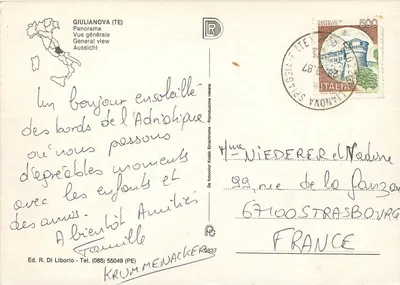 GIULIANOVA (TE)
Panorama
Vue générale
General view
Aussicht
Un bonjour ensoleillé
des bords de l'Adriatique
où nous passons
d'agréables moments
avec les enfants et
des amis.
A bientôt Amitiés
Famille
KRUMMENACKER
Ed. R. Di Liborio - Tel. (085) 55049 (PE)
500
ITALIA
Mme NIEDERER et Madame
99, rue de la Ganzau
67100 STRASBOURG
FRANCE